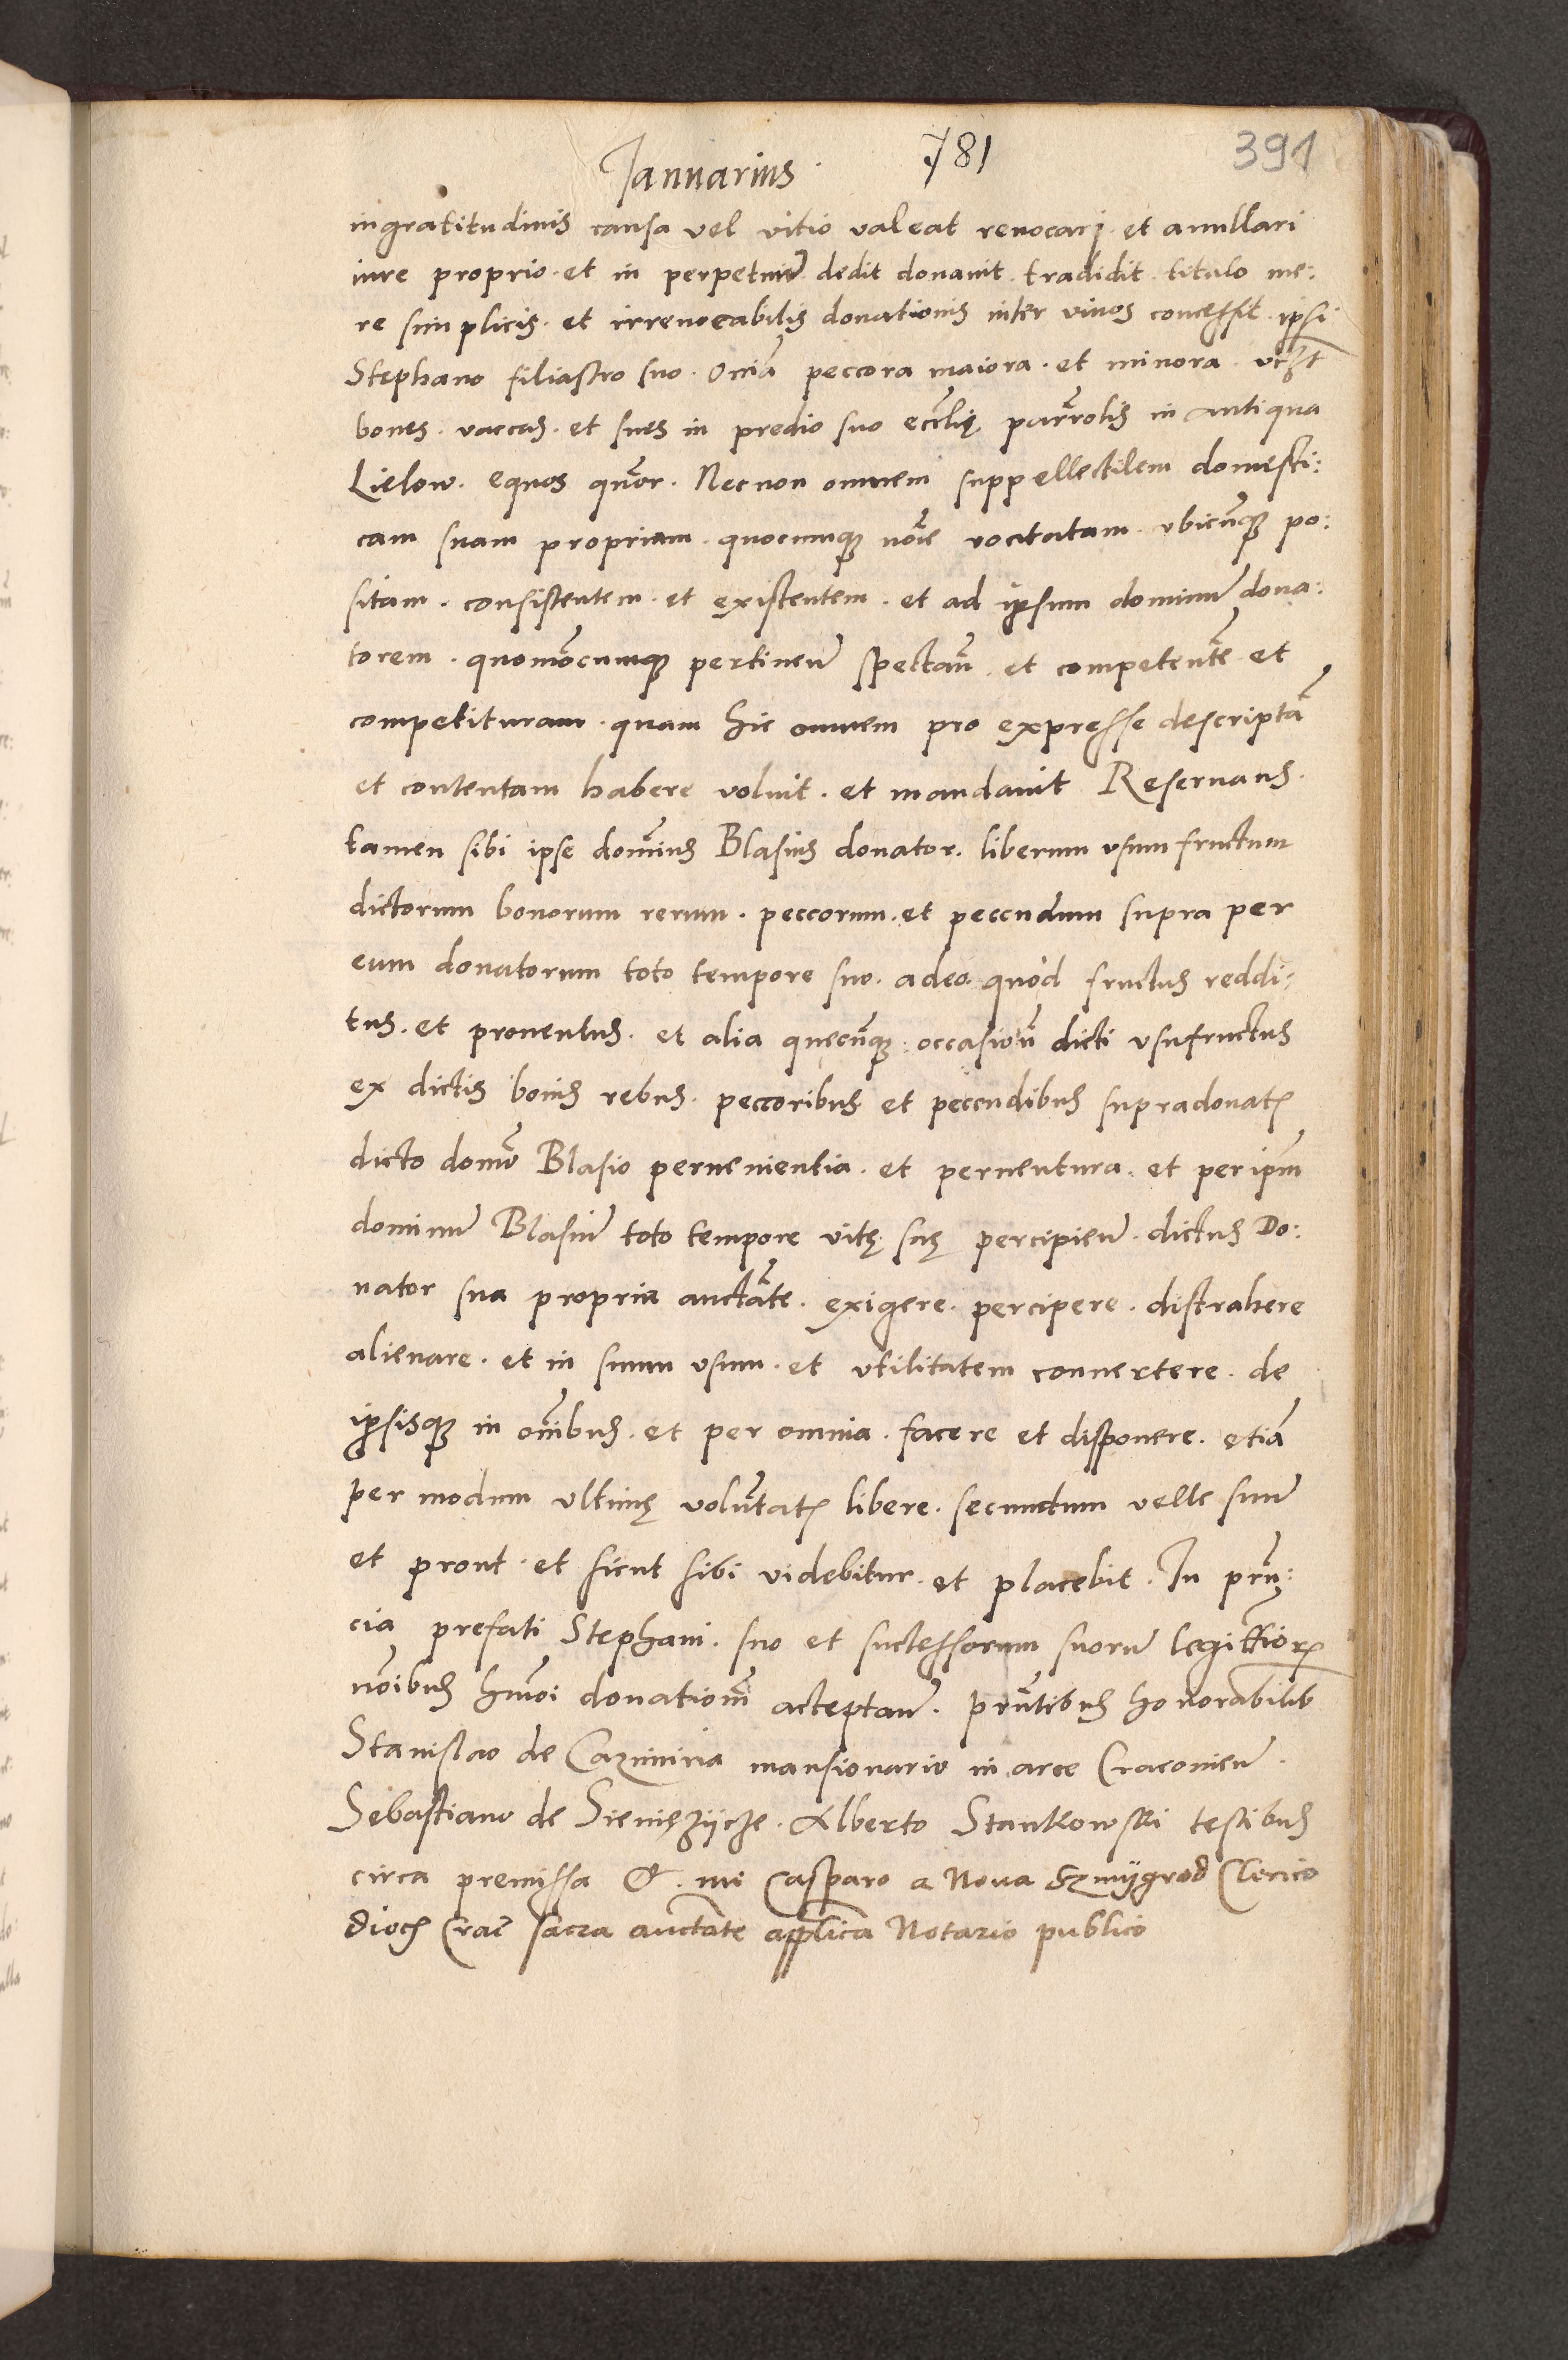 Januarius · 781 391
ingratitudinis causa vel vitio valeat reuocarj et anullari
iure proprio · et in perpetuũ dedit donauit tradidit titulo me:
re simplicis · et irreuocabilis donationis inter viuos concessit ipsi
Stephano filiastro suo · Om̃ia peccora maiora · et minora · vcꝫt
boues · vaccas · et sues in predio suo eccl̃ię parr̃olis in antiqua
Lielow · equos quãor · Necnon omnem suppellectilem domesti:
cam suam propriam · quocumqꝫ nõie vocitatam · vbicũqꝫ po:
sitam · consistentem · et existentem · et ad ipsum dominũ dona:
torem · quomõcumqꝫ pertineñ spectañ · et competeñte et
competituram · quam hic omnem pro expresse descriptã
et contentam habere voluit · et mandauit Reseruans ·
tamen sibi ipse domiñus Blasius donator · liberum vsumfructum
dictorum bonorum rerum · peccorum · et peccudum supra per
eum donatorum toto tempore suo · adeo quod fructus reddi:
tus · et prouentus · et alia quęcũqꝫ occasioñ dicti vsufructus
ex dictis bonis rebus · peccoribus et peccudibus supradonatꝭ
dicto domño Blasio peruenientia · et peruentura · et per ip̃m
dominũ Blasiũ toto tempore vitę suę percipieñ · dictus Do:
nator sua propria auctãte · exigere · percipere · distrahere
alienare · et in suum vsum · et vtilitatem conuertere · de
ipsisqꝫ in om̃ibus · et per omnia · facere et disponere · etiã
per modum vltimę volũtatꝭ libere · secundum velle suũ
et prout · et sicut sibi videbitur · et placebit · In prñ:
cia prefati Stephani · suo et successorum suorũ legittĩorꝝ
nõibus hm̃oi donationẽ acceptañ · prñtibus honorabilibꝫ
Stanislao de Cazimiria mansionario in arce Cracouień ·
Sebastiano de Alberto Stankowski testibus
circa premissa Et · mi Casparo a Noua Szmÿgrod Clerico
diocꝭ Crac̃ sacra auctãte app̃lica Notario publico